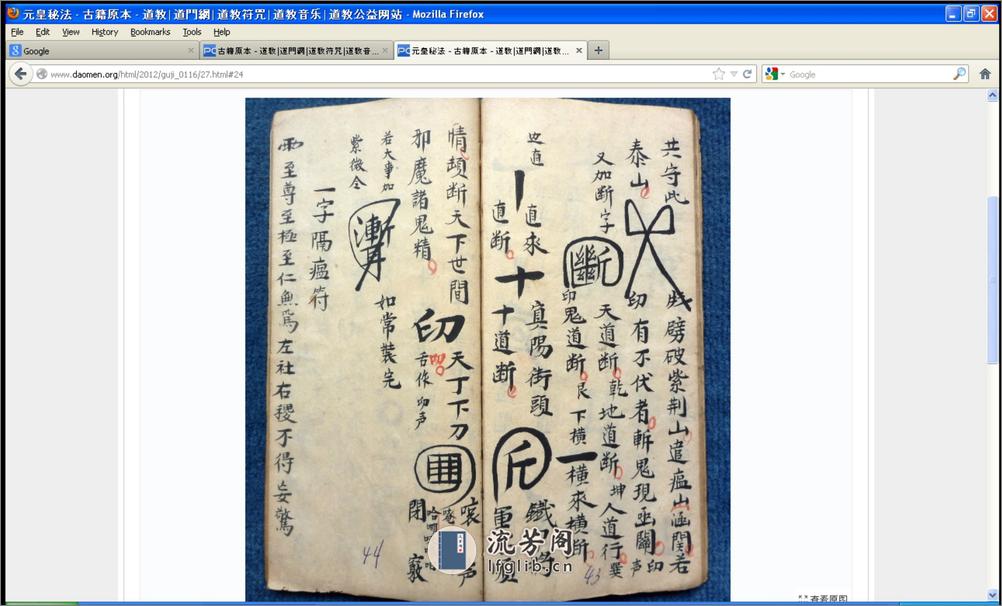 元皇秘法 - 古籍原本 - 道教|道門網|道教符咒|道教音乐|道教公益网站 - Mozilla Firefox
File Edit View History Bookmarks Tools Help
Google
古籍原本 - 道教|道門網|道教符咒|道教音...
元皇秘法 - 古籍原本 - 道教|道門網|道教...
www.daomen.org/html/2012/guji_0116/27.html#24
Google
共守此
劈破紫荆山遣瘟山涵関若
泰山
印有不伏者斬鬼現巫關印声
又加断字
斷
天道断乾地道断坤人道行巽
印鬼道断艮下横一横來橫断
直來
寅陽街頭
直断
十
十道断
斤
情頚断天下世間
天丁下刀
邪魔諸鬼精
印
舌作印声
閉
若大事加
紫微仝
如常裝完
一字隔瘟符
至尊至極至仁無為左社右稷不得妄驚
43
44
流芳阁
lfglib.cn
查看原图